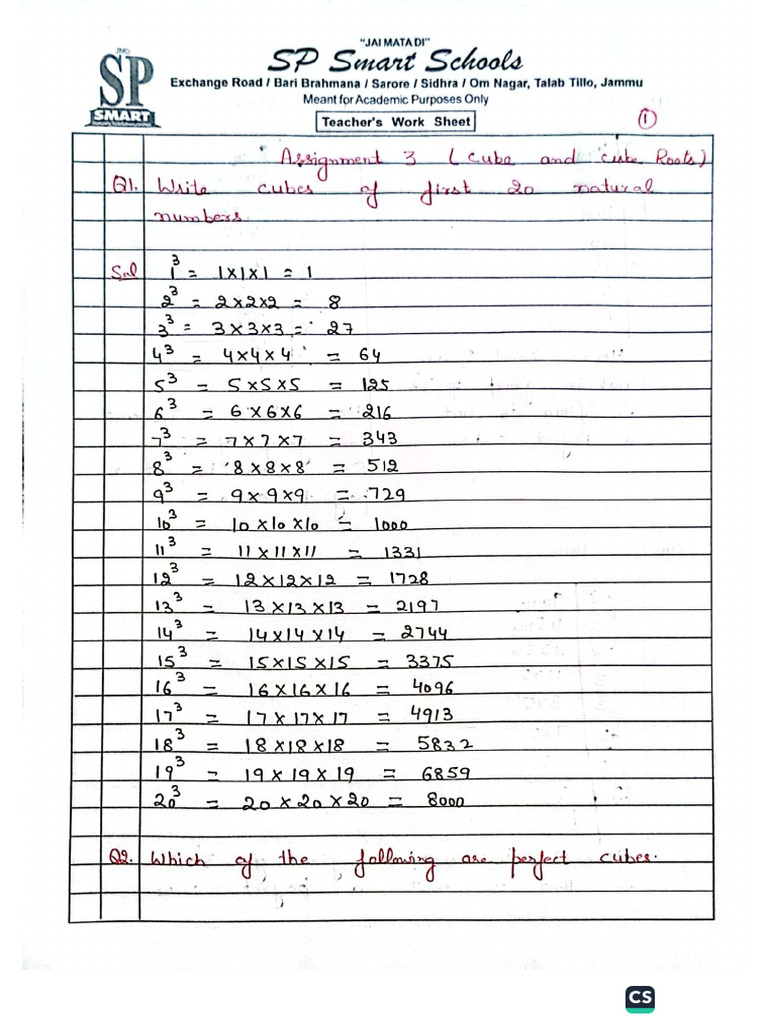 "JAI MATA DI"
JMD
SP
SMART
SP Smart Schools
Exchange Road / Bari Brahmana / Sarore / Sidhra / Om Nagar, Talab Tillo, Jammu
Meant for Academic Purposes Only
Teacher's Work Sheet
1
Assignment 3 (Cube and cube Roots)
Q1. Write cubes of first 20 natural
numbers.
Sol 1³ = 1×1×1 = 1
2³ = 2×2×2 = 8
3³ = 3×3×3 = 27
4³ = 4×4×4 = 64
5³ = 5×5×5 = 125
6³ = 6×6×6 = 216
7³ = 7×7×7 = 343
8³ = 8×8×8 = 512
9³ = 9×9×9 = 729
10³ = 10×10×10 = 1000
11³ = 11×11×11 = 1331
12³ = 12×12×12 = 1728
13³ = 13×13×13 = 2197
14³ = 14×14×14 = 2744
15³ = 15×15×15 = 3375
16³ = 16×16×16 = 4096
17³ = 17×17×17 = 4913
18³ = 18×18×18 = 5832
19³ = 19×19×19 = 6859
20³ = 20×20×20 = 8000
Q2. Which of the following are perfect cubes.
CS